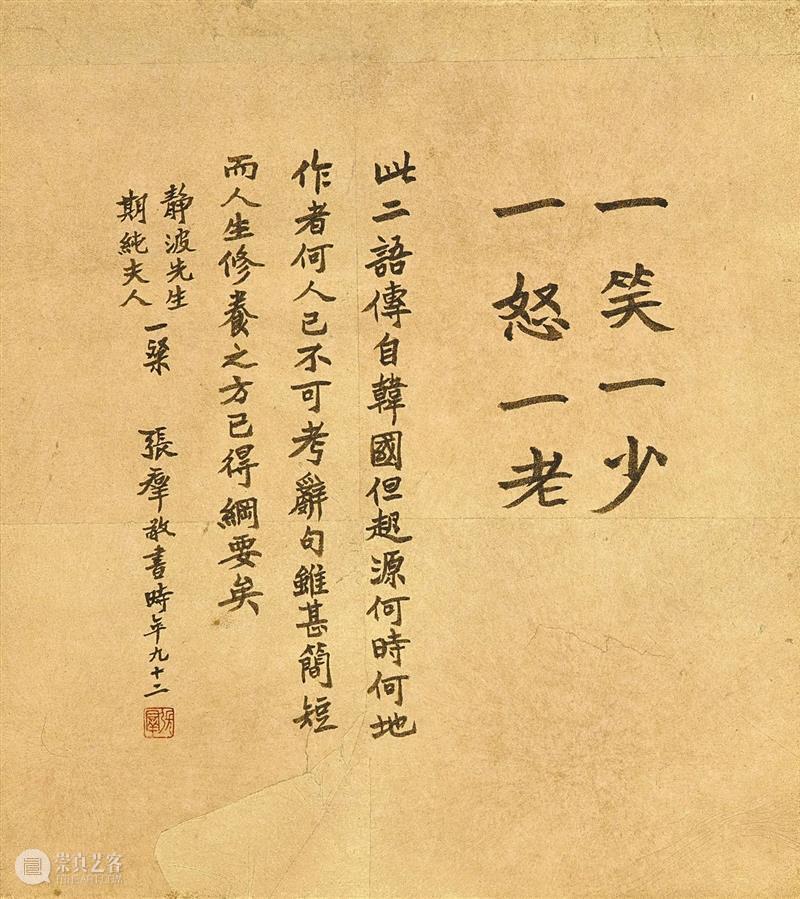 一笑一少
一怒一老
此二語傳自韓國但起源何時何地
作者何人已不可考辭句雖甚簡短
而人生修養之方已得綱要矣
靜波先生
期純夫人 一粲
張羣敬書時年九十二
張羣
崇真艺客